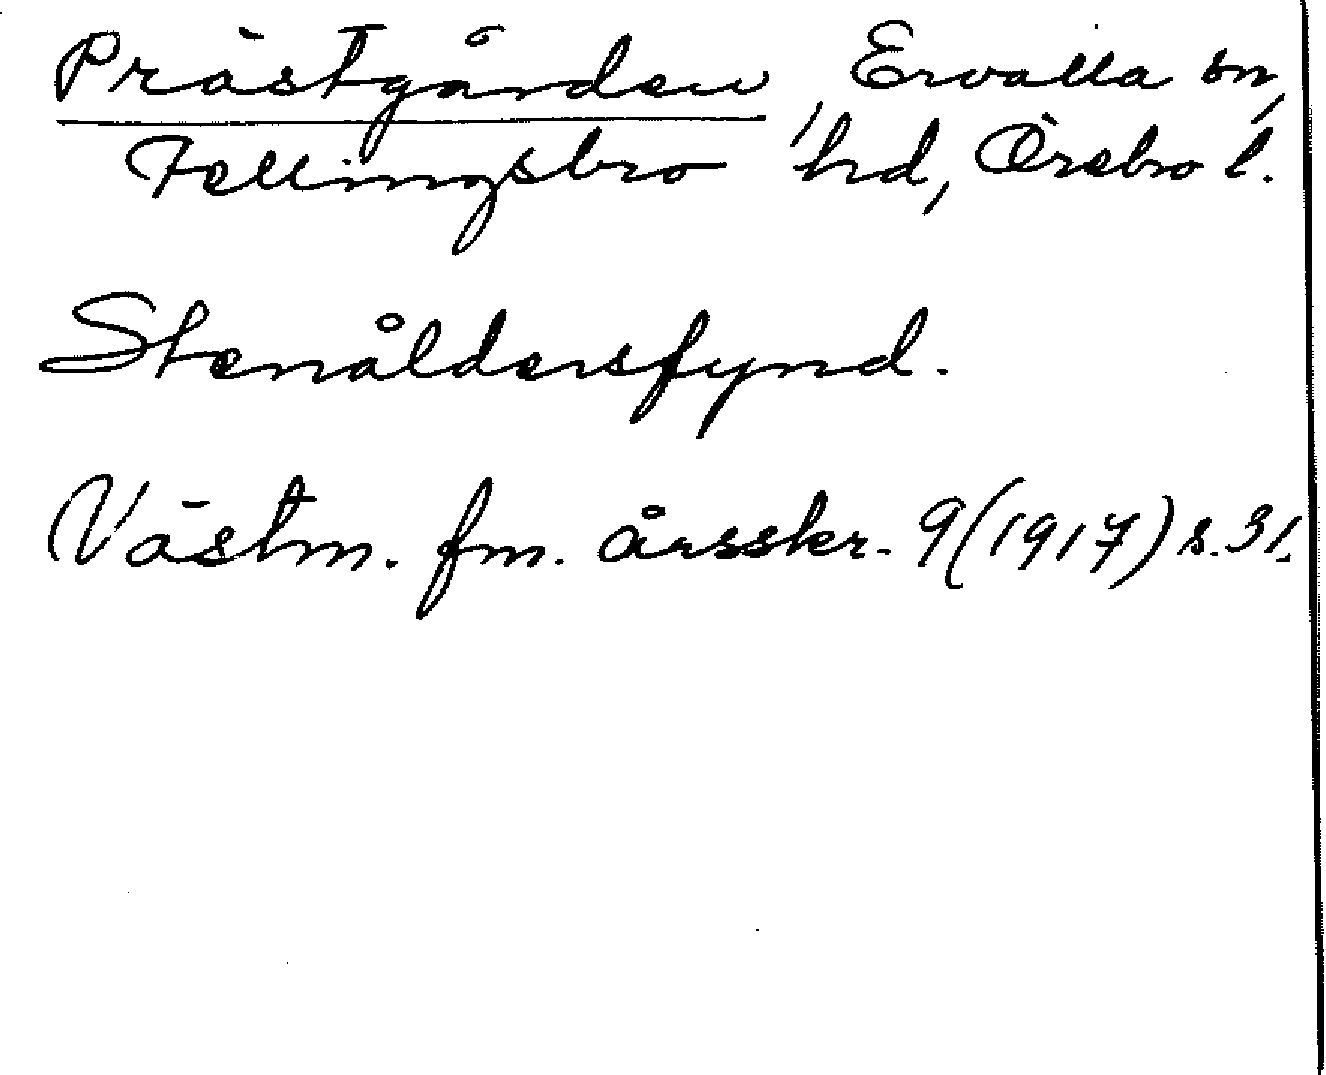 Prästgården, Ervalla sn,
Fellingsbro hd, Örebro l.
Stenåldersfynd.
Västm. fm. årsskr. 9(1917) s. 31.